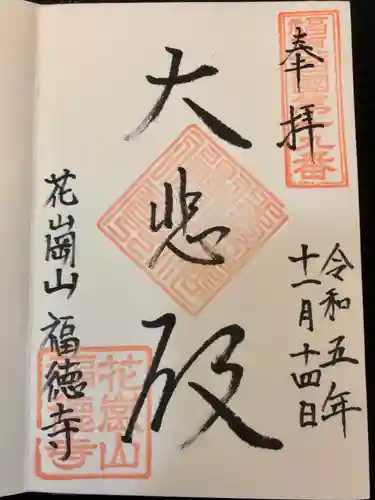 奉拝
令和五年
十一月十四日
大悲殿
花崗山 福徳寺
花崗山
福徳寺